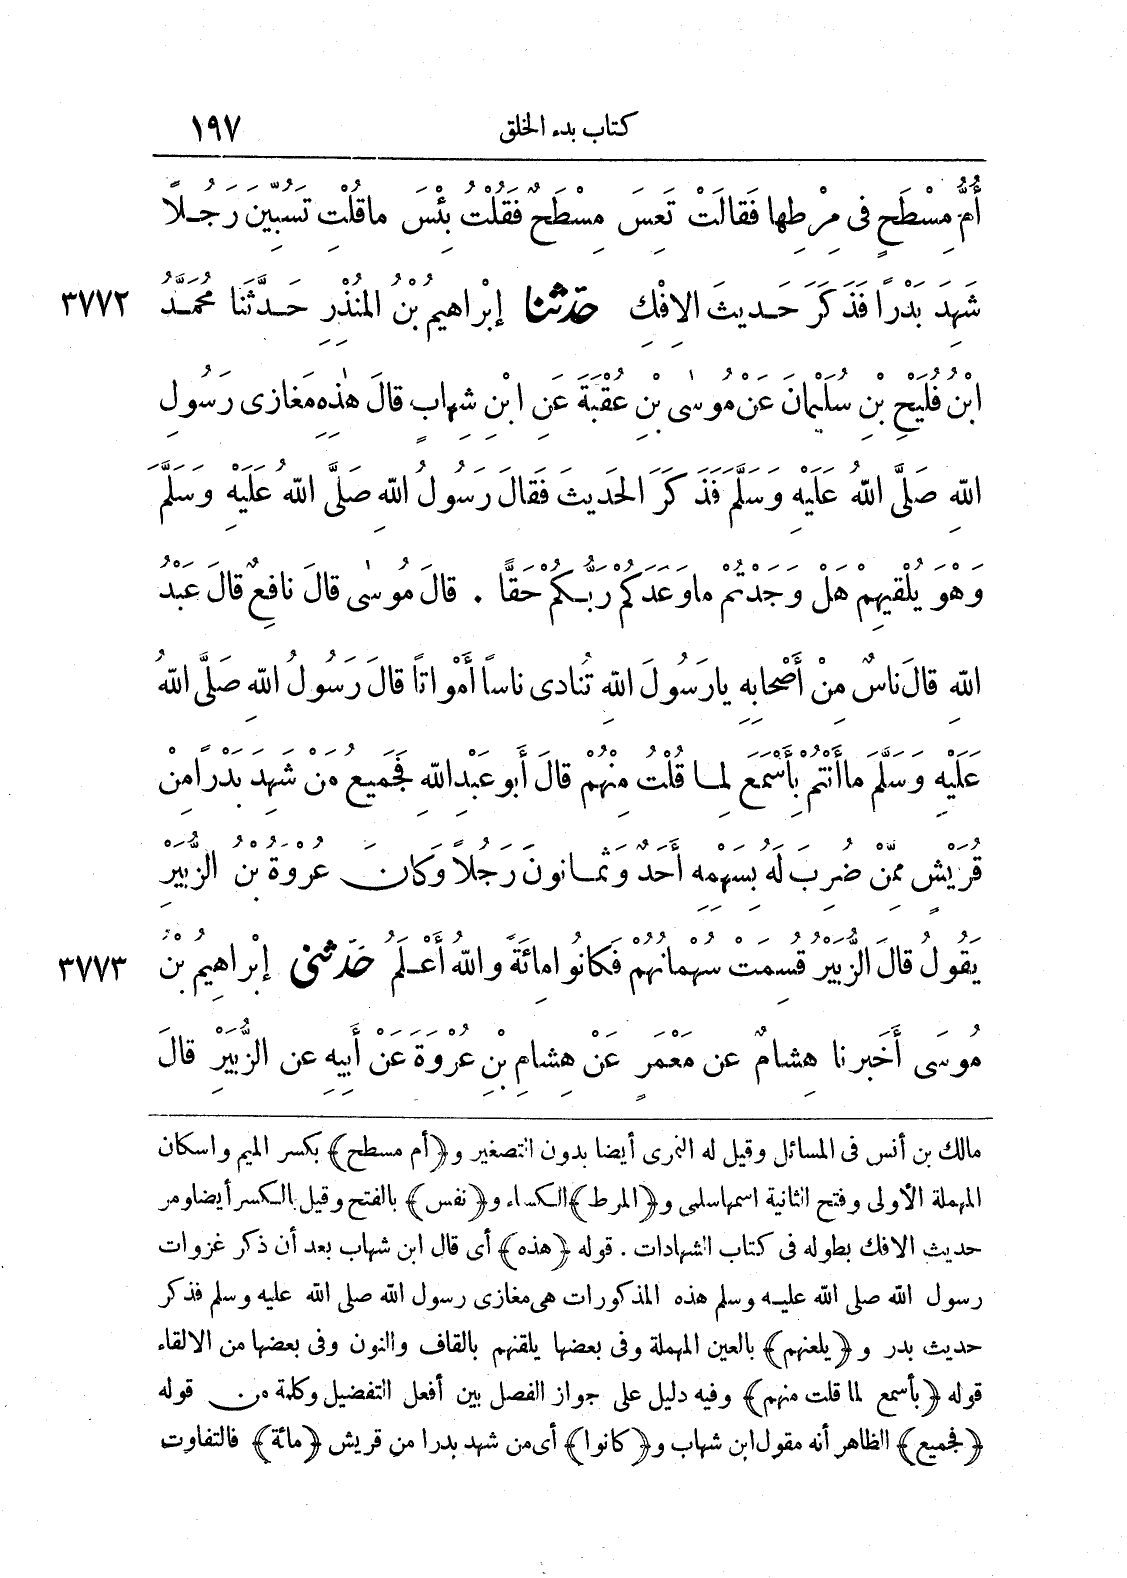 كتاب بدء الخلق ١٩٧
أُمُّ مِسْطَحٍ فِى مِرْطِها فَقالَتْ تَعِسَ مِسْطَحٌ فَقُلْتُ بِئْسَ ماقُلْتِ تَسُبِّينَ رَجُلاً
شَهِدَ بَدْرًا فَذَكَرَ حَدِيثَ الإِفْكِ حَدَّثَنا إِبْراهِيمُ بْنُ المُنْذِرِ حَدَّثَنا مُحَمَّدُ ٣٧٧٢
ابْنُ فُلَيْحِ بْنِ سُلَيْمانَ عَنْ مُوسٰى بْنِ عُقْبَةَ عَنِ ابْنِ شِهابٍ قالَ هٰذِهِ مَغازِى رَسُولِ
اللهِ صَلَّى اللهُ عَلَيْهِ وَسَلَّمَ فَذَكَرَ الحَدِيثَ فَقالَ رَسُولُ اللهِ صَلَّى اللهُ عَلَيْهِ وَسَلَّمَ
وَهْوَ يُلْقِيهِمْ هَلْ وَجَدْتُمْ ماوَعَدَكُمْ رَبُّكُمْ حَقًّا . قالَ مُوسٰى قالَ نافِعٌ قالَ عَبْدُ
اللهِ قالَ ناسٌ مِنْ أَصْحابِهِ يارَسُولَ اللهِ تُنادِى ناساً أَمْواتاً قالَ رَسُولُ اللهِ صَلَّى اللهُ
عَلَيْهِ وَسَلَّمَ ماأَنْتُمْ بِأَسْمَعَ لِما قُلْتُ مِنْهُمْ قالَ أَبُو عَبْدِ اللهِ فَجَمِيعُ مَنْ شَهِدَ بَدْرًا مِنْ
قُرَيْشٍ مِمَّنْ ضُرِبَ لَهُ بِسَهْمِهِ أَحَدٌ وَثَمانُونَ رَجُلاً وَكانَ عُرْوَةُ بْنُ الزُّبَيْرِ
يَقُولُ قالَ الزُّبَيْرُ قُسِمَتْ سُهْمانُهُمْ فَكانُوا مِائَةً واللهُ أَعْلَمُ حَدَّثَنِى إِبْراهِيمُ بْنُ ٣٧٧٣
مُوسَى أَخْبَرَنا هِشامٌ عن مَعْمَرٍ عَنْ هِشامِ بْنِ عُرْوَةَ عَنْ أَبِيهِ عن الزُّبَيْرِ قالَ
مالك بن أنس فى المسائل وقيل له النمرى أيضا بدون التصغير و﴿أم مسطح﴾ بكسر الميم واسكان
المهملة الأولى وفتح الثانية اسمهاسلمى و﴿المرط﴾الكساء و﴿نفس﴾ بالفتح وقيل بالكسرأيضاومر
حديث الافك بطوله فى كتاب الشهادات . قوله ﴿هذه﴾ أى قال ابن شهاب بعد أن ذكر غزوات
رسول الله صلى الله عليه وسلم هذه المذكورات هى مغازى رسول الله صلى الله عليه وسلم فذكر
حديث بدر و ﴿يلعنهم﴾ بالعين المهملة وفى بعضها يلقنهم بالقاف والنون وفى بعضها من الالقاء
قوله ﴿بأسمع لما قلت منهم﴾ وفيه دليل على جواز الفصل بين أفعل التفضيل وكلمة من قوله
﴿فجميع﴾ الظاهر أنه مقول ابن شهاب و﴿كانوا﴾ أى من شهد بدرا من قريش ﴿مائة﴾ فالتفاوت